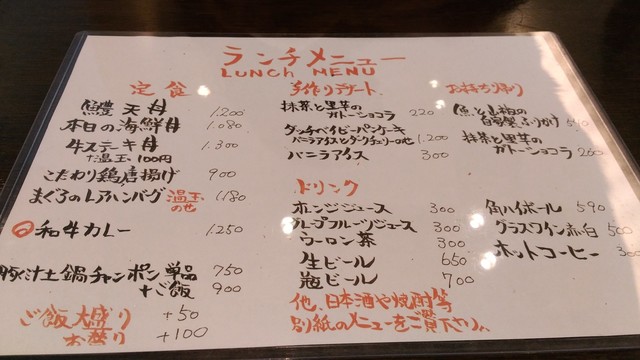 ランチメニュー
LUNCH MENU
定食
鱧天丼 1,200
本日の海鮮丼 1,080
牛ステーキ丼 1,300
+温玉100円
こだわり鶏唐揚げ 900
まぐろのレアハンバーグ 温玉のせ 1,180
和牛カレー 1,250
豚汁土鍋チャンポン 単品 750
+ご飯 900
ご飯大盛り +50
お替り +100
手作りデザート
抹茶と里芋のガトーショコラ 220
ダッチベイビーパンケーキ
バニラアイスとダークチェリーのせ 1,200
バニラアイス 300
ドリンク
オレンジジュース 300
グレープフルーツジュース 300
ウーロン茶 300
生ビール 650
瓶ビール 700
他、日本酒や焼酎等
別紙のメニューをご覧下さい。
お持ち帰り
自家製ふりかけ
抹茶と里芋の
ガトーショコラ 260
角ハイボール 590
グラスワイン赤・白 500
ホットコーヒー 300